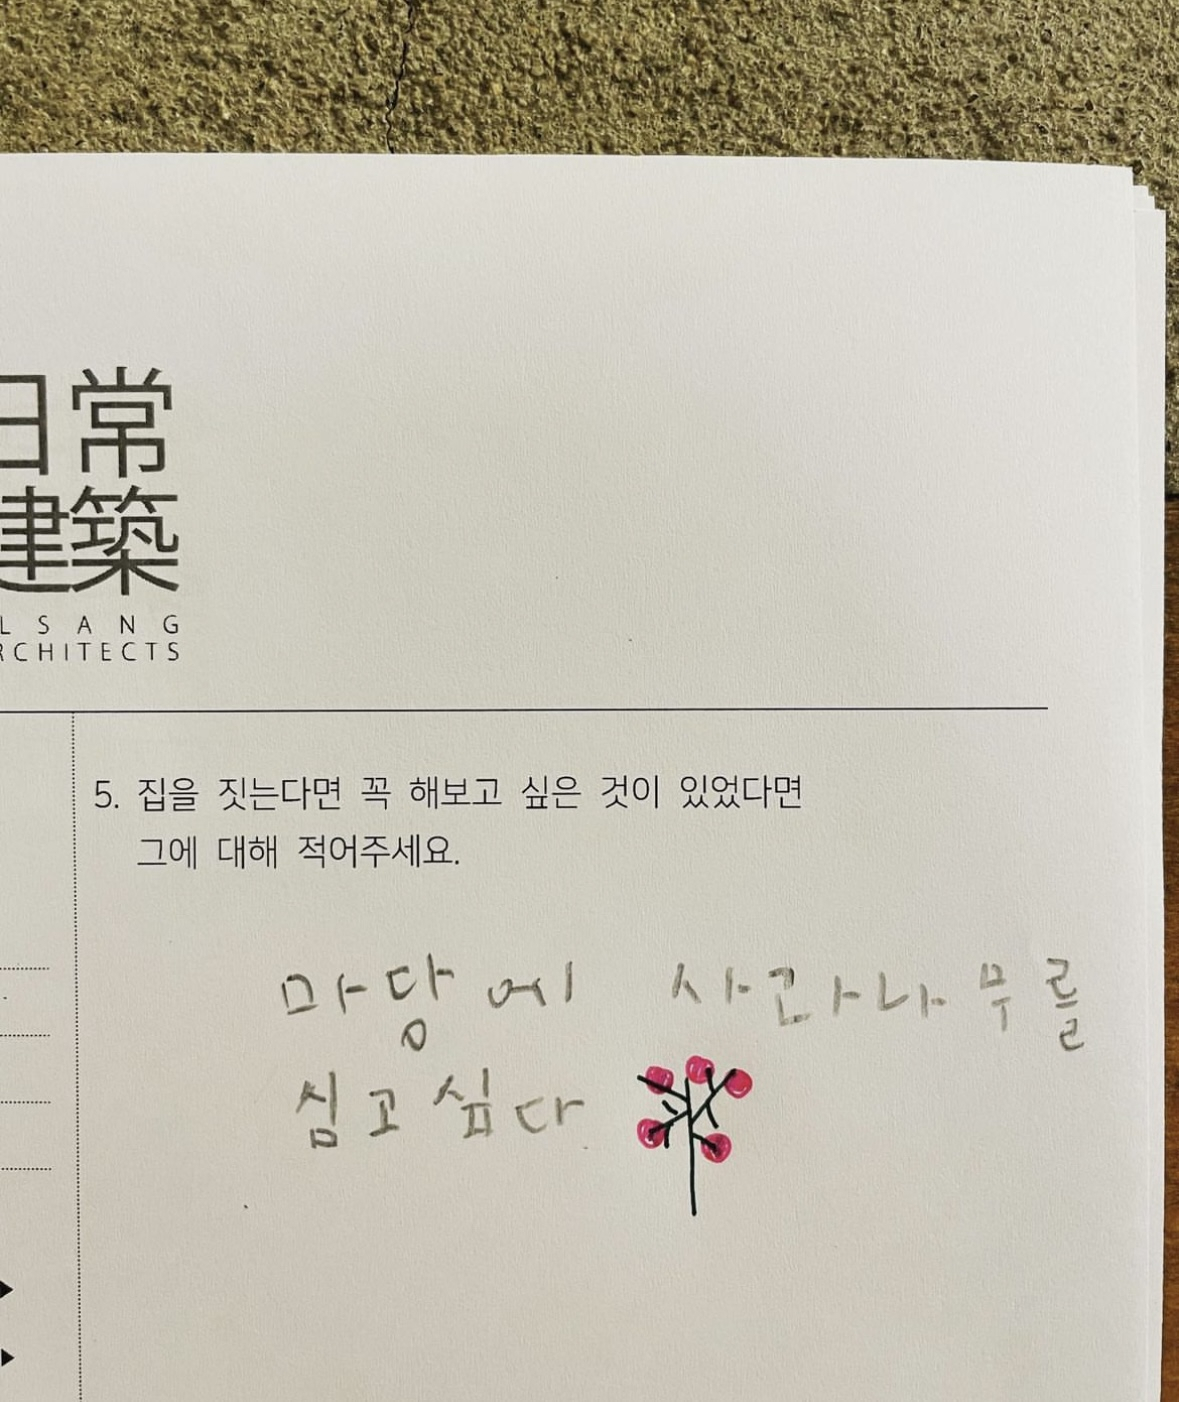 日常
建築
LSANG
RCHITECTS
5. 집을 짓는다면 꼭 해보고 싶은 것이 있었다면
그에 대해 적어주세요.
마당에 사과나무를
심고싶다